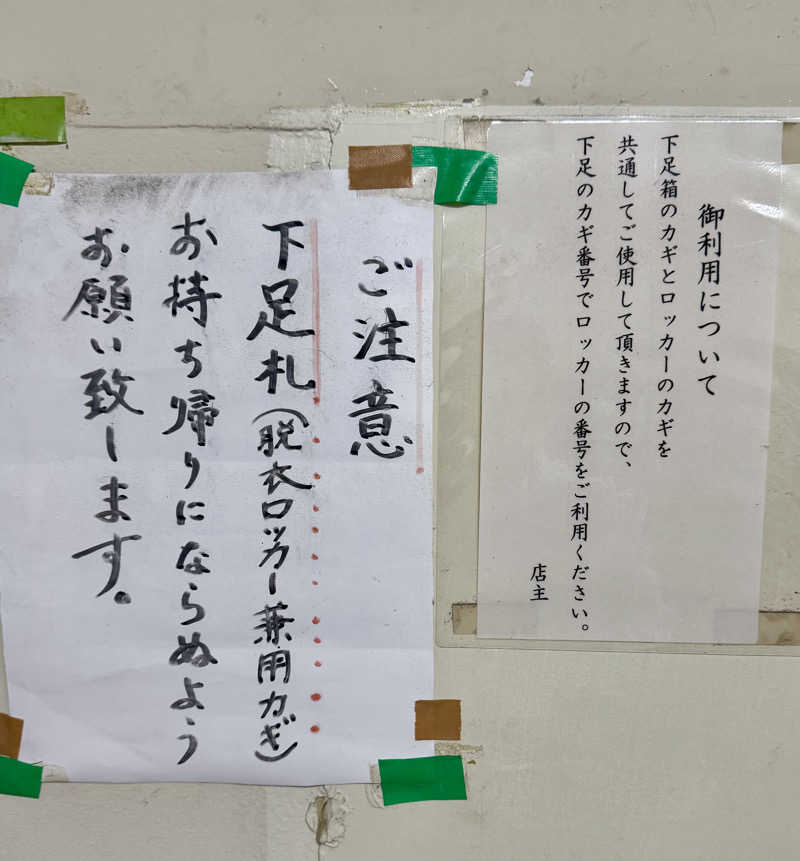 御利用について
下足箱のカギとロッカーのカギを
共通してご使用して頂きますので、
下足のカギ番号でロッカーの番号をご利用ください。
店主
ご注意
下足札(脱衣ロッカー兼用カギ)
お持ち帰りにならぬよう
お願い致します。